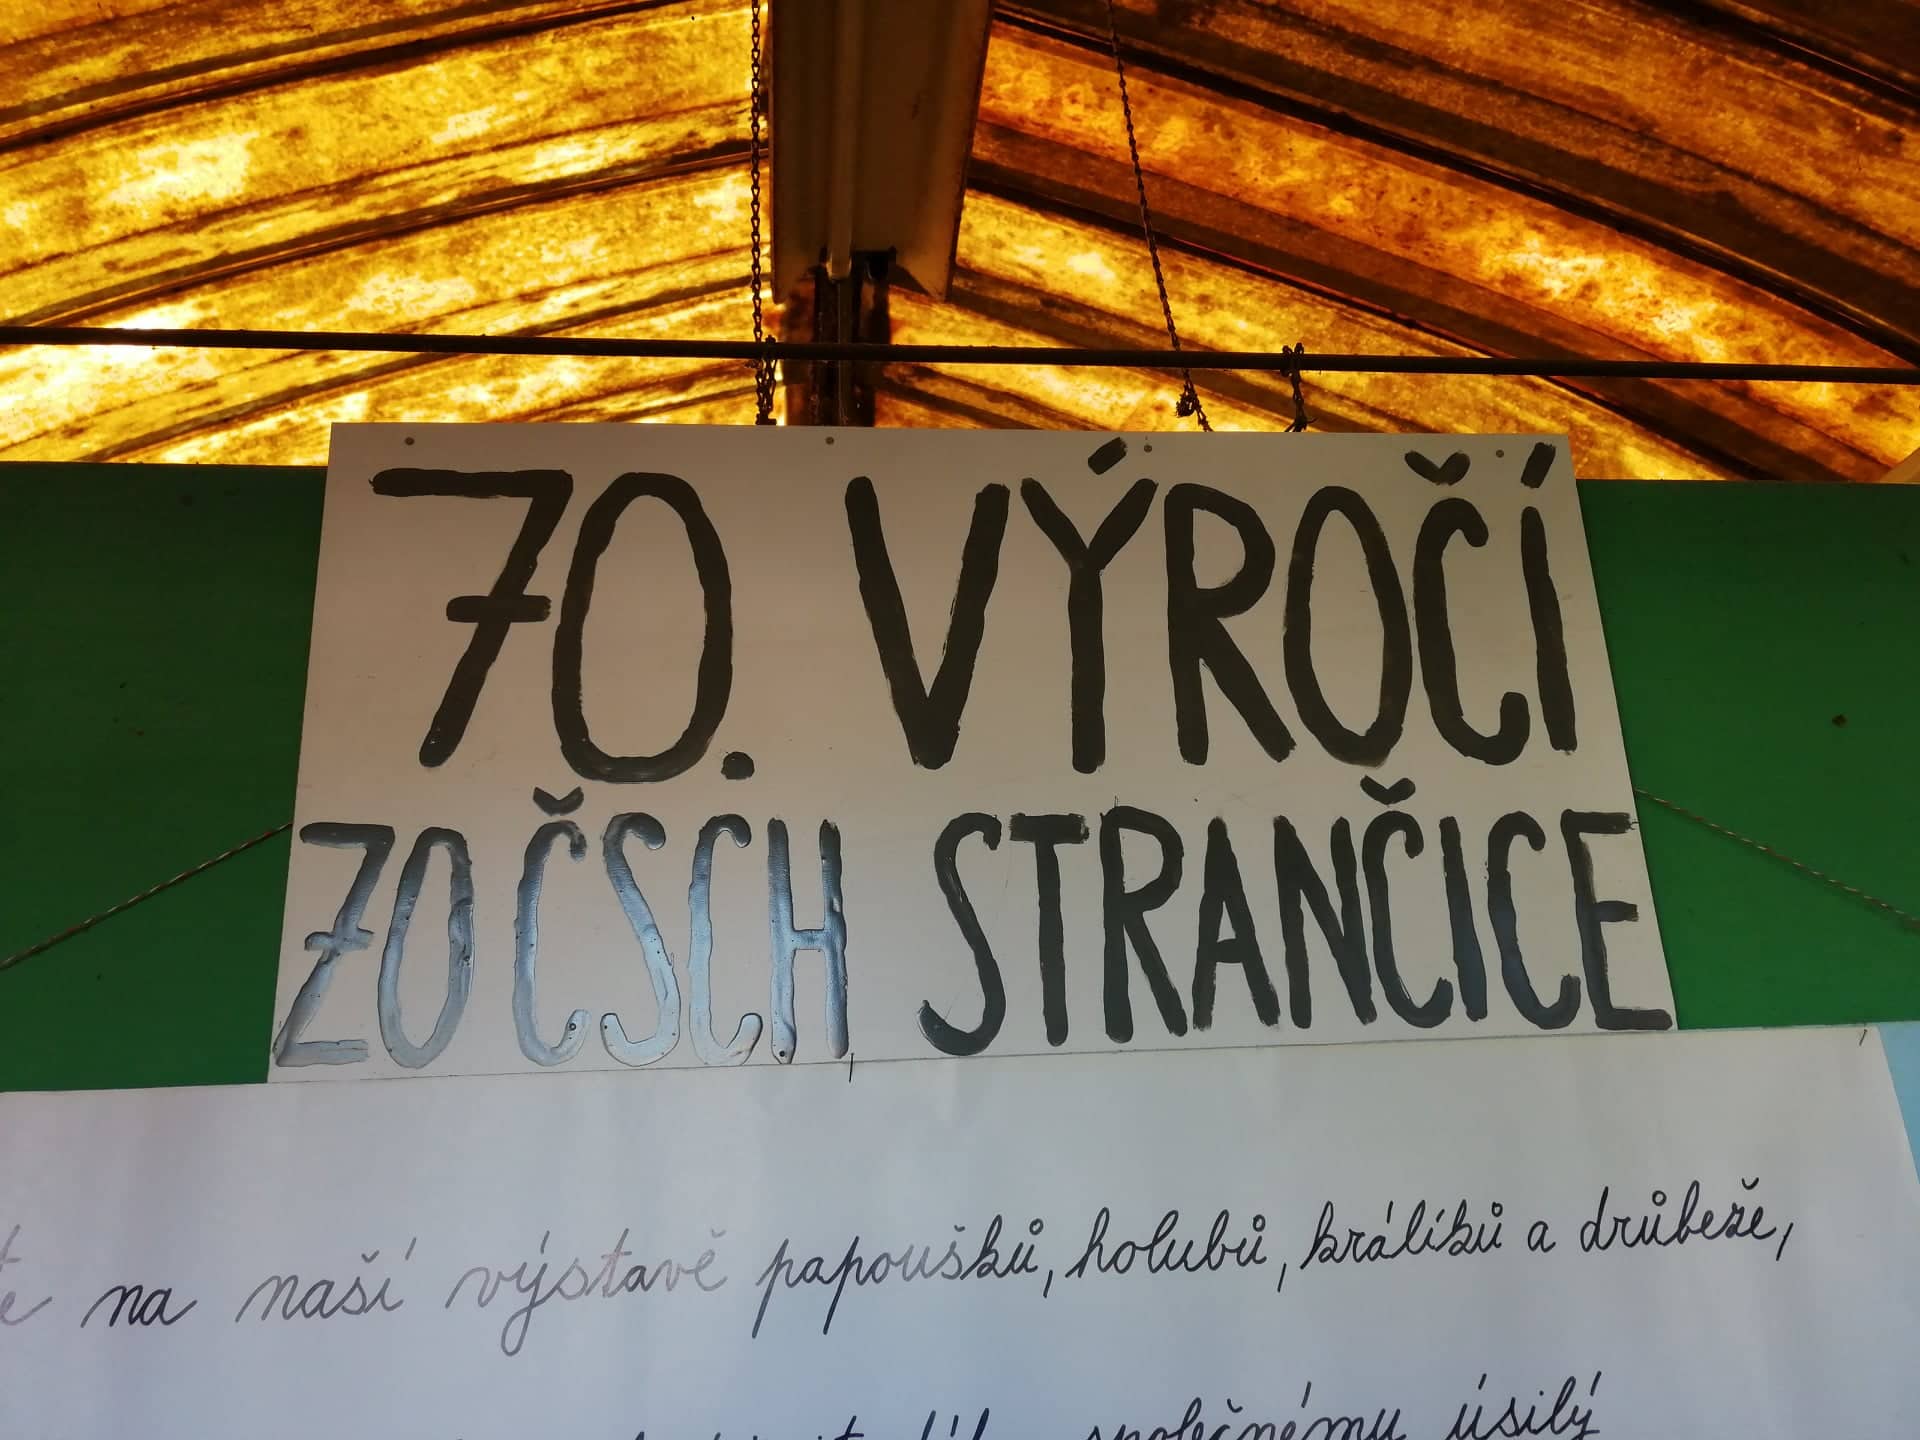 70. VÝROČÍ
ZO ČSCH STRANČICE
na naší výstavě papoušků, holubů, králíků a drůbeže,
společnému úsilý